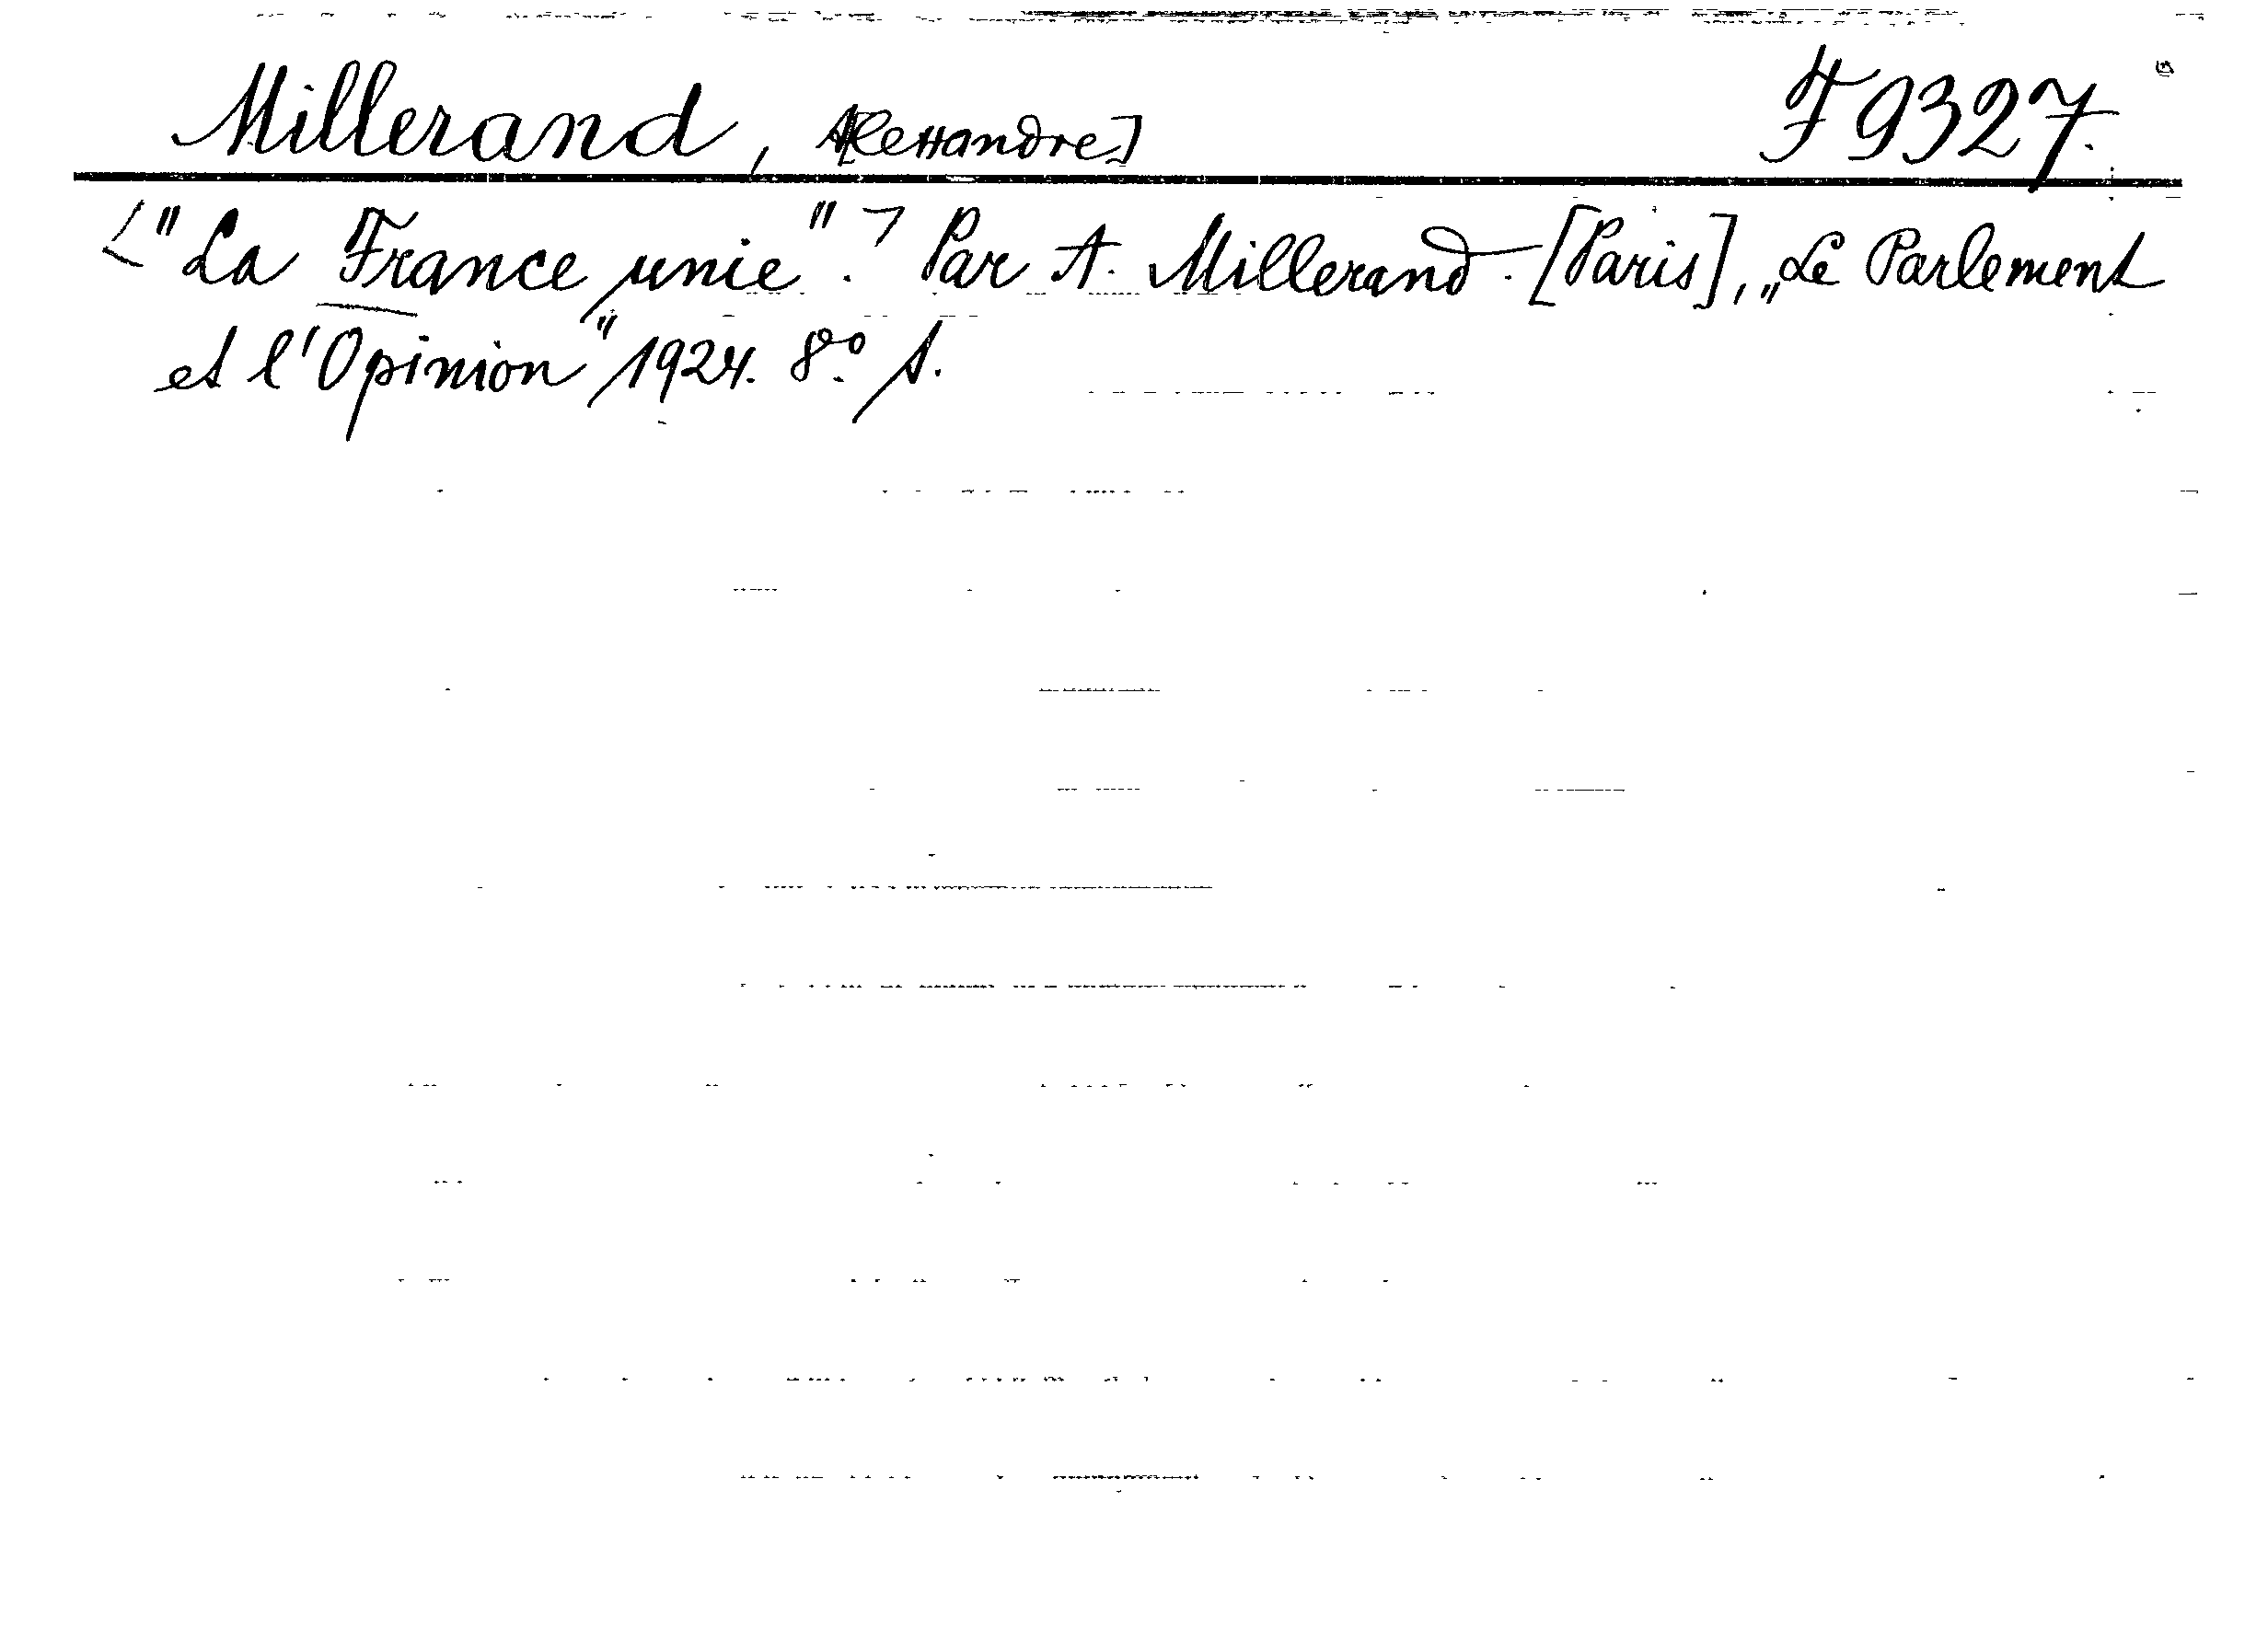 Millerand, A[lexandre] F 9327.
<"La France unie".> Par A. Millerand. [Paris], „Le Parlement
et l'Opinion", 1924. 8.° s.